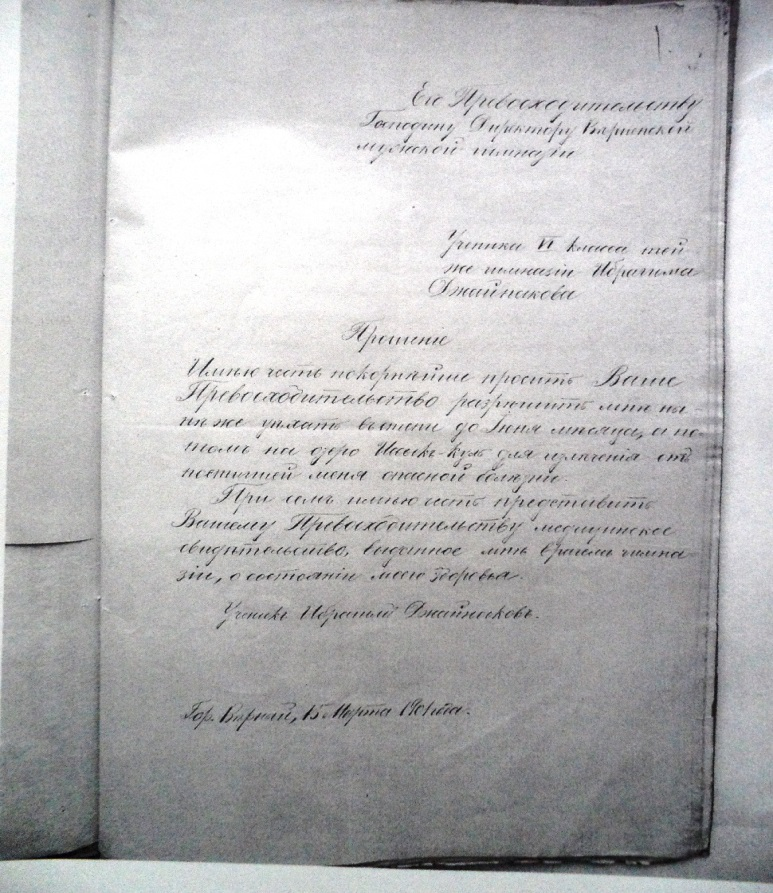 1.
Его Превосходительству
Господину Директору Вѣрненской
мужской гимназіи
Ученика VI класса той
же гимназіи Ибрагима
Джайнакова
Прошеніе
Имѣю честь покорнѣйше просить Ваше
Превосходительство разрѣшить мнѣ ны-
нѣ же уѣхать въ до Іюня мѣсяца, а по-
томъ на озеро Иссыкъ-Куль для излеченія отъ
постигшей меня опасной болѣзни.
При семъ имѣю честь представить
Вашему Превосходительству медицинское
свидѣтельство, выданное мнѣ врачемъ гимна-
зіи, о состояніи моего здоровья.
Ученикъ Ибрагимъ Джайнаковъ.
Гор. Вѣрный, 15 Марта 1901 года.